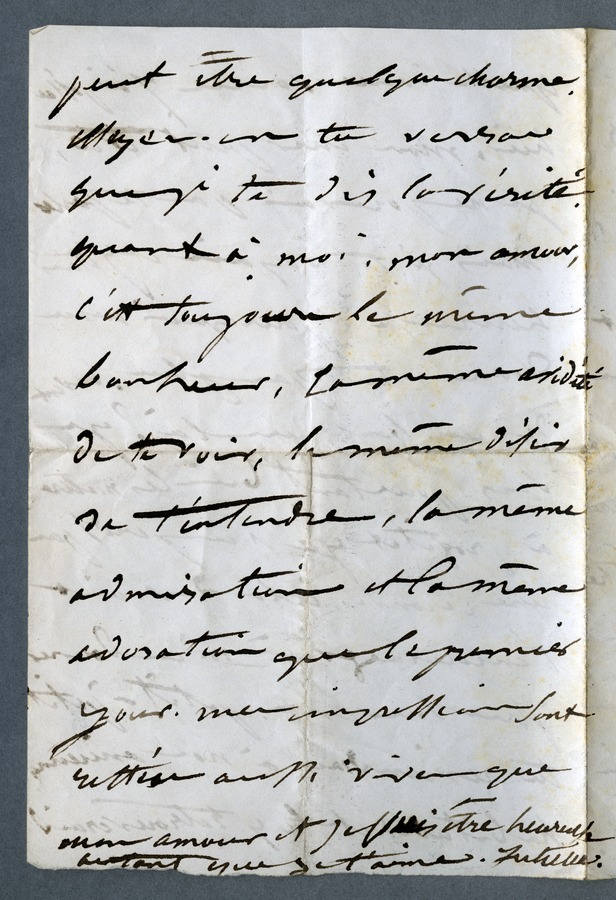 peut être quelque charme.
Essayes-en tu verras
que je te dis la vérité.
quant à moi, mon amour,
c'est toujours le même
bonheur, la même avidité
de te voir, le même désir
de t'entendre, la même
admiration et la même
adoration que le premier
jour. mes impressions sont
restées aussi vives que
mon amour et je puis être heureuse
autant que je t'aime. Juliette.